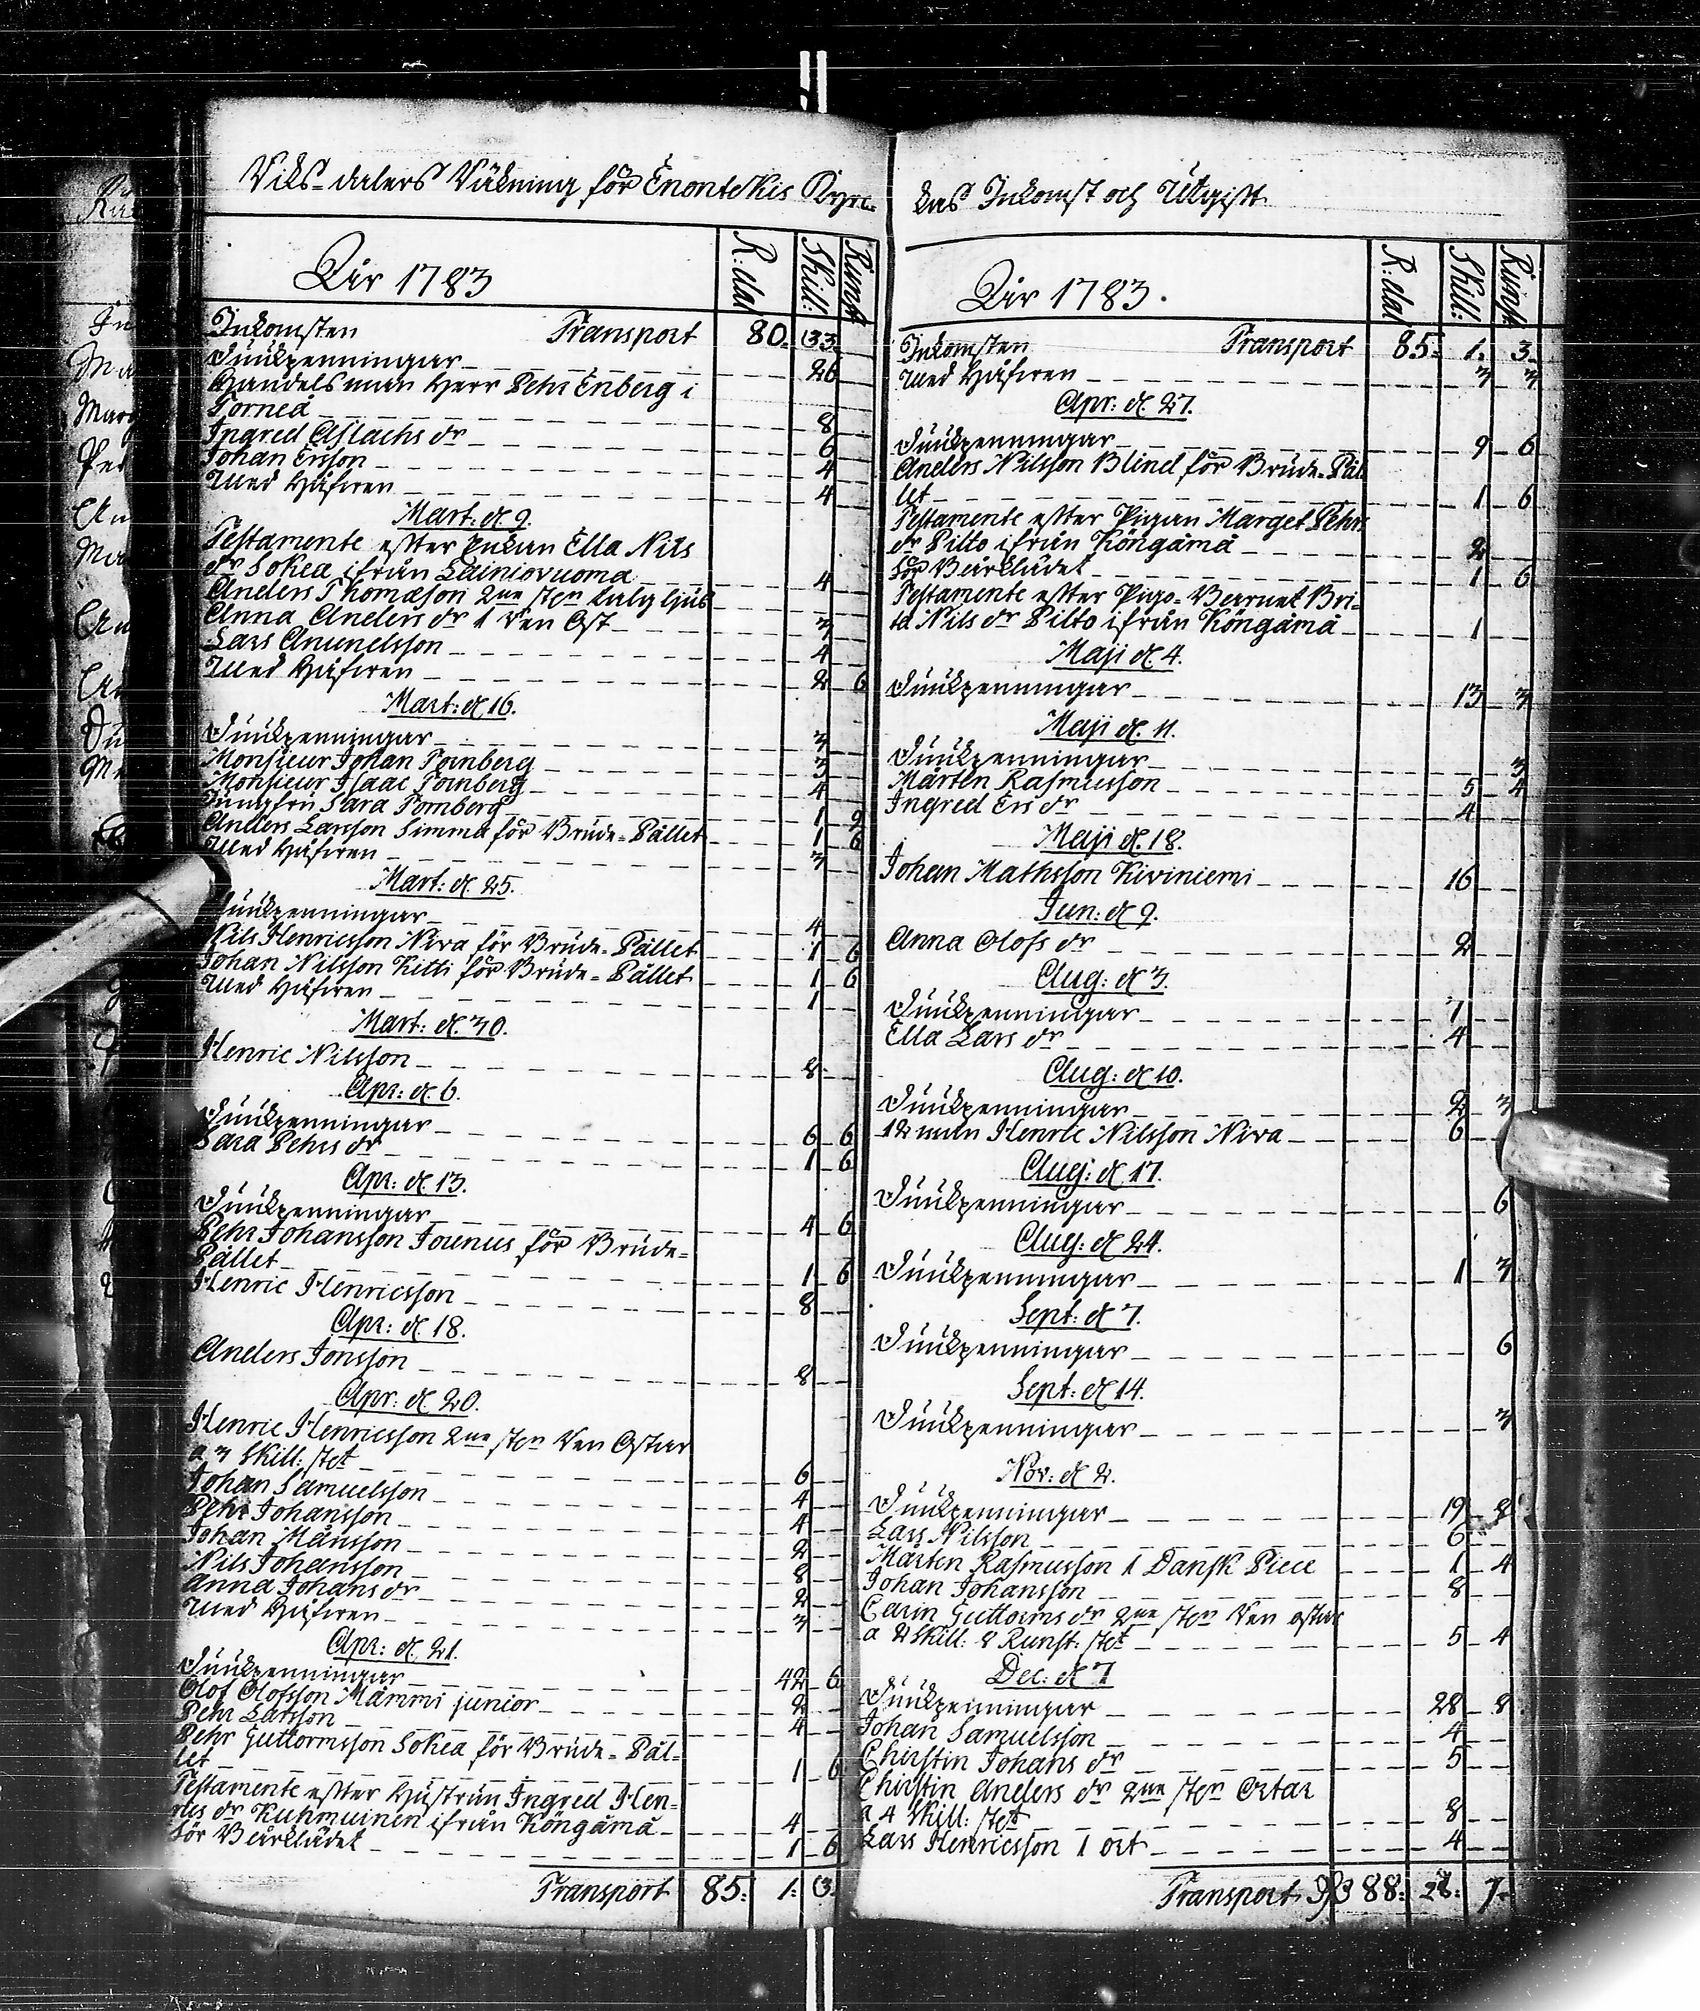 Riks-dalers Räkning för Enontekis Kyrc-
Åhr 1783
R:dal Skill: Runst
Inkomsten Transport 80. 33.
Siukpenningar 26
Handelsman Herr Pehr Enberg i
Torneå 8
Ingred Aslachs dr 6
Johan Ersson 4
Med Håfwen 4
Mart: d. 9.
Testamente efter Enkan Ella Nils
dr Sokea ifrån Lainiovuoma 4
Anders Thomæson 2ne st:n talg ljus
Anna Anders dr 1 Ren Ost 3
Lars Amundsson 4
Med Håfwen 2 6
Mart: d. 16.
Siukpenningar 3
Monsieur Johan Tornberg 3
Monsieur Isaac Tornberg 4
Jungfru Sara Tornberg 1 9
Anders Larsson Simma för Brude-Pället 1 6
Med Håfwen 3
Mart: d. 25.
Siukpenningar 4
Nils Henricsson Niva för Brude-Pället 1 6
Johan Nilsson Kitti för Brude-Pället 1 6
Med Håfwen 1
Mart: d. 30.
Henric Nilsson 8
Apr: d. 6.
Siukpenningar 6 6
Sara Pehrs dr 1 6
Apr: d. 13.
Siukpenningar 4 6
Pehr Johansson Jounus för Brude-
Pället 1 6
Henric Henricsson 8
Apr: d. 18.
Anders Jonsson 8
Apr: d. 20.
Henric Henricsson 2ne st:n Ren Ostar
a 3 Skill: st:t 6
Johan Samuelsson 4
Pehr Johansson 4
Johan Månsson 2
Nils Johansson 8
Anna Johans dr 2
Med Håfwen 3
Apr: d. 21.
Siukpenningar 42 6
Olof Olofsson Mämmi junior 2
Pehr Larsson 4
Pehr Guttormsson Sokea för Brude-Päl-
let 1 6
Testamente efter Hustrun Ingred Hen-
rics dr Kuhmuinen ifrån Köngämä 4
för Bårklädet 1 6
Transport 85. 1. 3.
kas Inkomst och Utgift
Åhr 1783.
R:dal Skill: Runst
Inkomsten Transport 85. 1. 3.
Med Håfwen 3 3
Apr: d. 27.
Siukpenningar 9 6
Anders Nilsson Blind för Brude-Päl
let 1 6
Testamente efter Pigan Marget Pehrs
dr Pilto ifrån Köngämä 2
för Bårklädet 1 6
Testamente efter Pigo-Barnet Bri-
ta Nils dr Pilto ifrån Köngämä 1
Maji d. 4.
Siukpenningar 13 3
Maji d. 11.
Siukpenningar 3
Mårten Rasmusson 5 4
Ingred Ers dr 4
Maji d. 18.
Johan Mathsson Kiviniemi 16
Jun: d. 9.
Anna Olofs dr 2
Aug: d. 3.
Siukpenningar 7
Ella Lars dr 4
Aug: d. 10.
Siukpenningar 2 3
12 man Henric Nilsson Niva 6
Aug: d. 17.
Siukpenningar 6
Aug: d. 24.
Siukpenningar 1 3
Sept: d. 7.
Siukpenningar 6
Sept: d. 14.
Siukpenningar 3
Nov: d. 2.
Siukpenningar 19 8
Lars Nilsson 6
Mårten Rasmusson 1 Dansk Piece 1 4
Johan Johansson 8
Carin Guttorms dr 2ne st:n Ren ostar
a 2 Skill: 8 Runst: st:t 5 4
Dec: d. 7
Siukpenningar 28 8
Johan Samuelsson 4
Christin Johans dr 5
Christin Anders dr 2ne st:n Ortar
a 4 Skill: st:t 8
Lars Henricsson 1 ort 4
Transport 88. 28. 7.